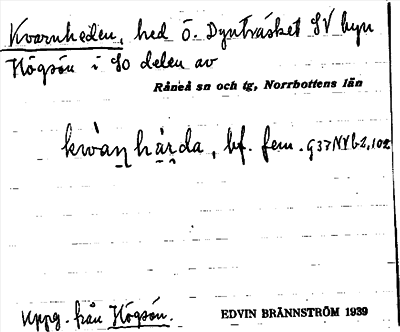 Kvarnheden, hed Ö. Dynträsket SV byn
Högsön i SO delen av
Råneå sn och tg, Norrbottens län
kwàṇhạ̀ṛda, bf. fem.
Uppg. från Högsön.
EDVIN BRÄNNSTRÖM 1939